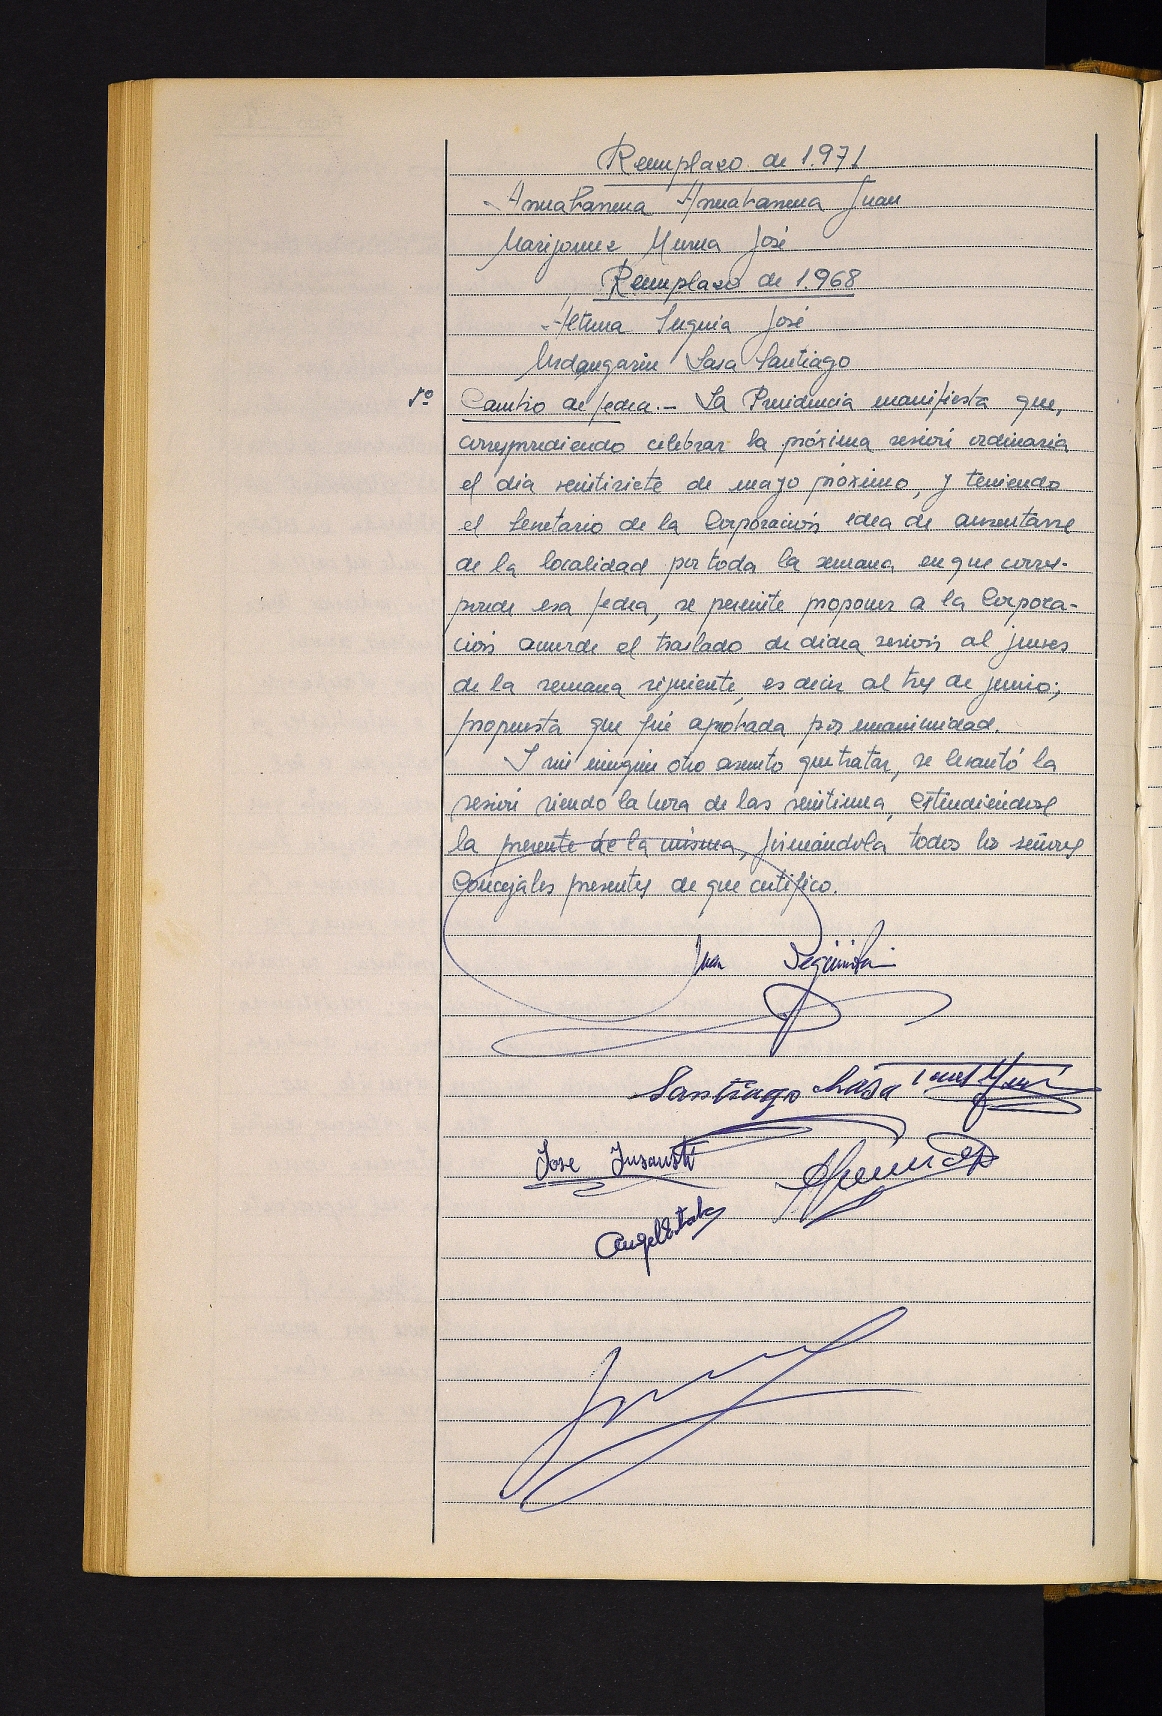 Remplazo de 1.971
Juan
José
Remplazo de 1.968
Altuna Inguia José
Urdangarin Sasa Santiago
5º Cambio de fecha.- La Presidencia manifiesta que,
correspondiendo celebrar la próxima sesión ordinaria
el día veintisiete de mayo próximo, y teniendo
el Secretario de la Corporación idea de ausentarse
de la localidad por toda la semana en que corres-
ponde esa fecha, se permite proponer a la Corpora-
ción acuerde el traslado de dicha sesión al jueves
de la semana siguiente, es decir al tres de junio;
propuesta que fué aprobada por unanimidad.
Y sin ningún otro asunto que tratar, se levantó la
sesión siendo la hora de las veintiuna, extendiéndose
la presente de la misma, firmándola todos los señores
Concejales presentes de que certifico.
Juan
Santiago
Jose
Angel